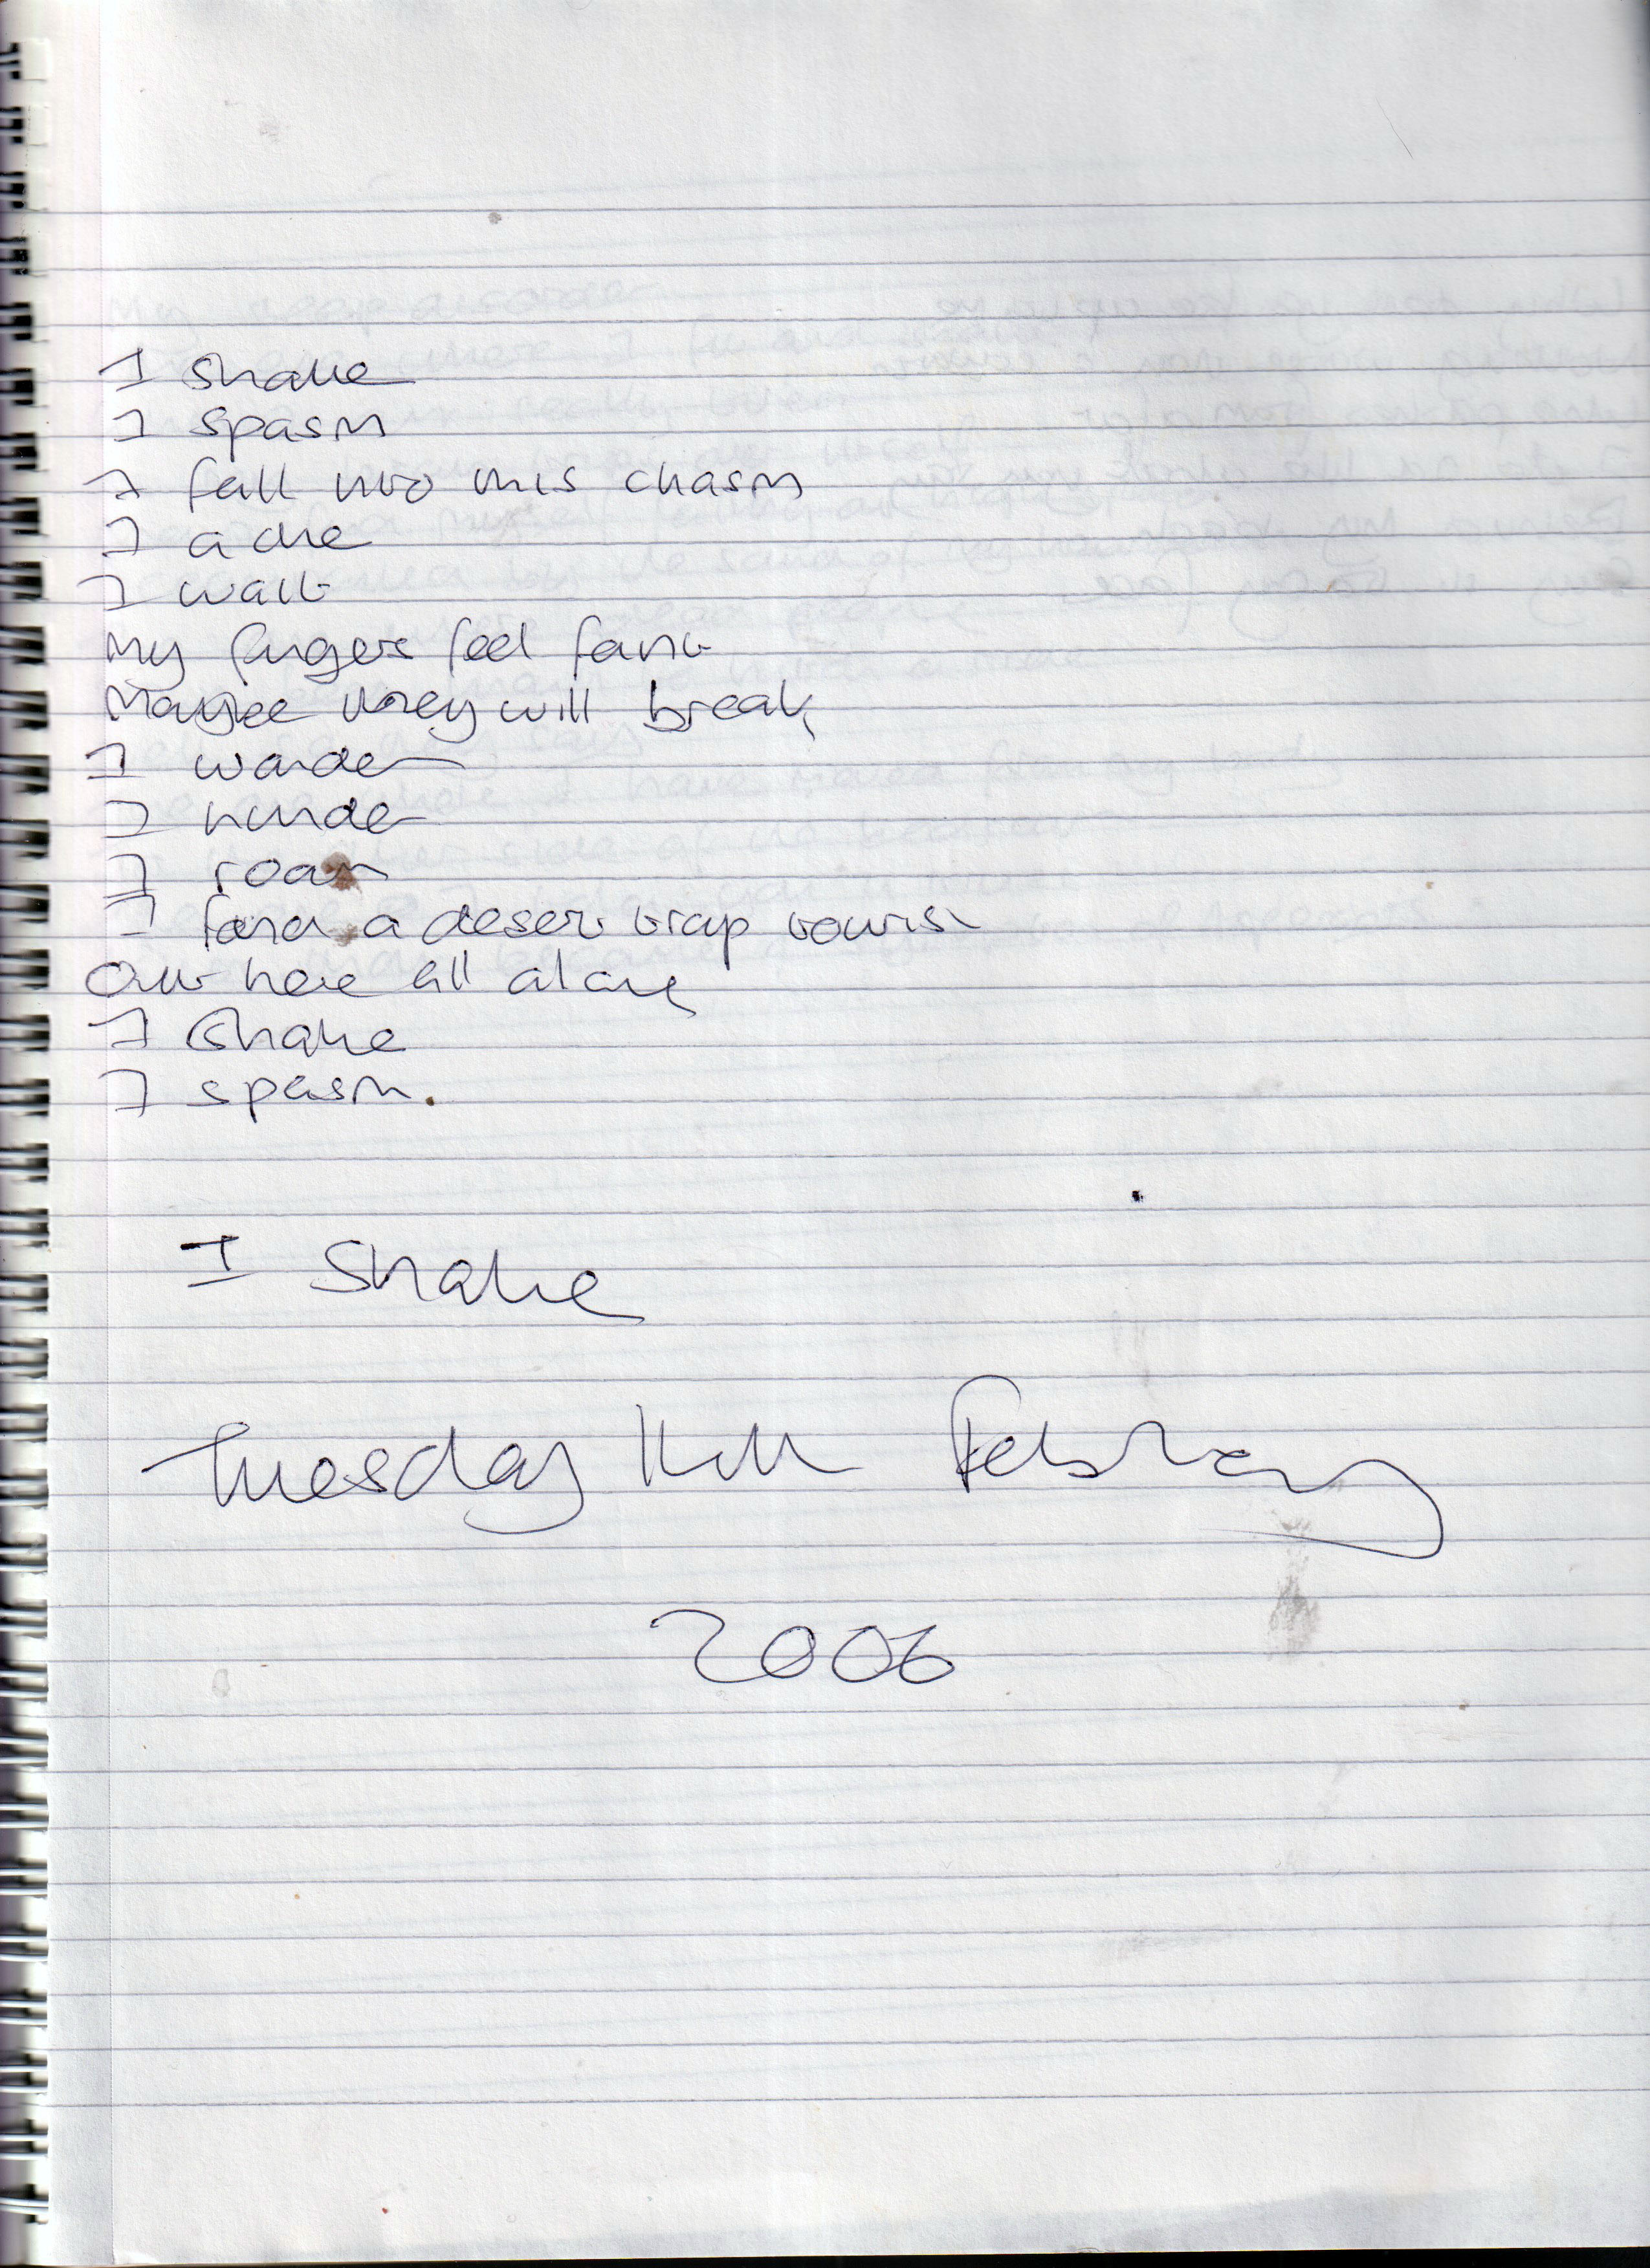 I shake
I spasm
I fall into this chasm
I ache
I wait
My fingers feel faint
Maybe they will break
I wander
I hinder
I roam
I find a desert trap tourist
Out here all alone
I shake
I spasm.
I Shake
Tuesday 14th February
2006